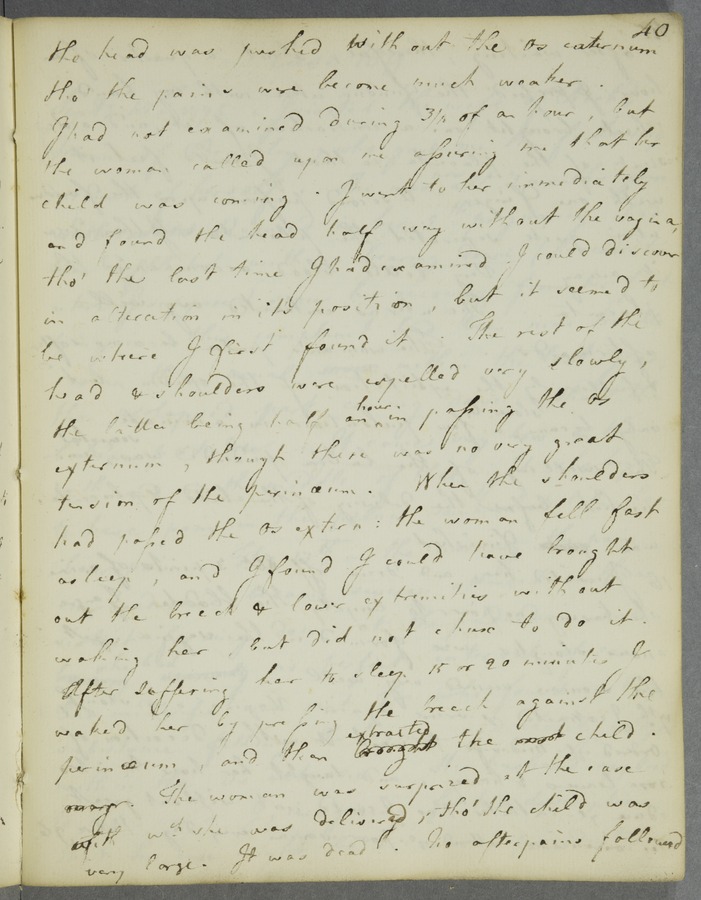 40
the head was pushed without the os externum
tho' the pains were become much weaker.
I had not examined during 3/4 of an hour, but
the woman called upon me assuring me that her
child was coming. I went to her immediately
and found the head half way without the vagina,
tho' the last time I had examined I could discover
in alteration in its position, but it seemed to
be where I first found it. The rest of the
head & shoulders were expelled very slowly,
the latter being half an hour in passing the os
externum, though there was no very great
tension of the perinæum. When the shoulders
had passed the os extern: the woman fell fast
asleep, and I found I could have brought
out the breech & lower extremities without
waking her, but did not chuse to do it.
After suffering her to sleep 15 or 20 minutes I
waked her by pressing the breech against the
perinæum, and then brought extracted the child.
The woman was surprized at the ease
with wch she was delivered, tho' the child was
very large. It was dead. No afterpains followed